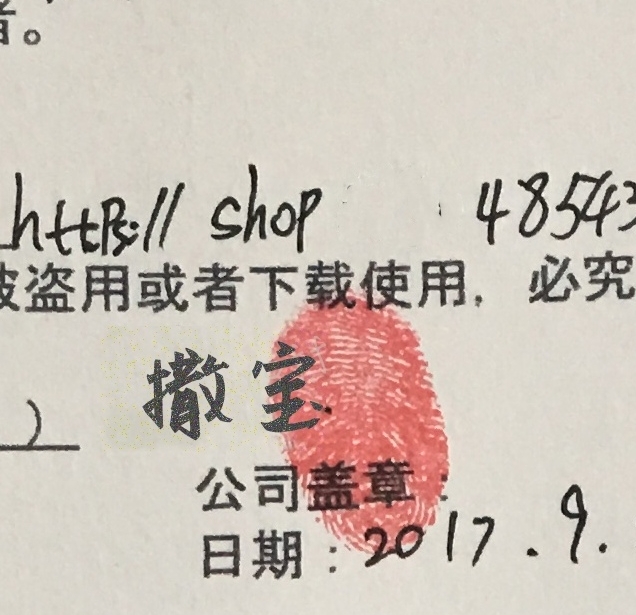 。
https:// shop 48543
被盗用或者下载使用，必究
撒宝
)
公司盖章：
日期：2017.9.